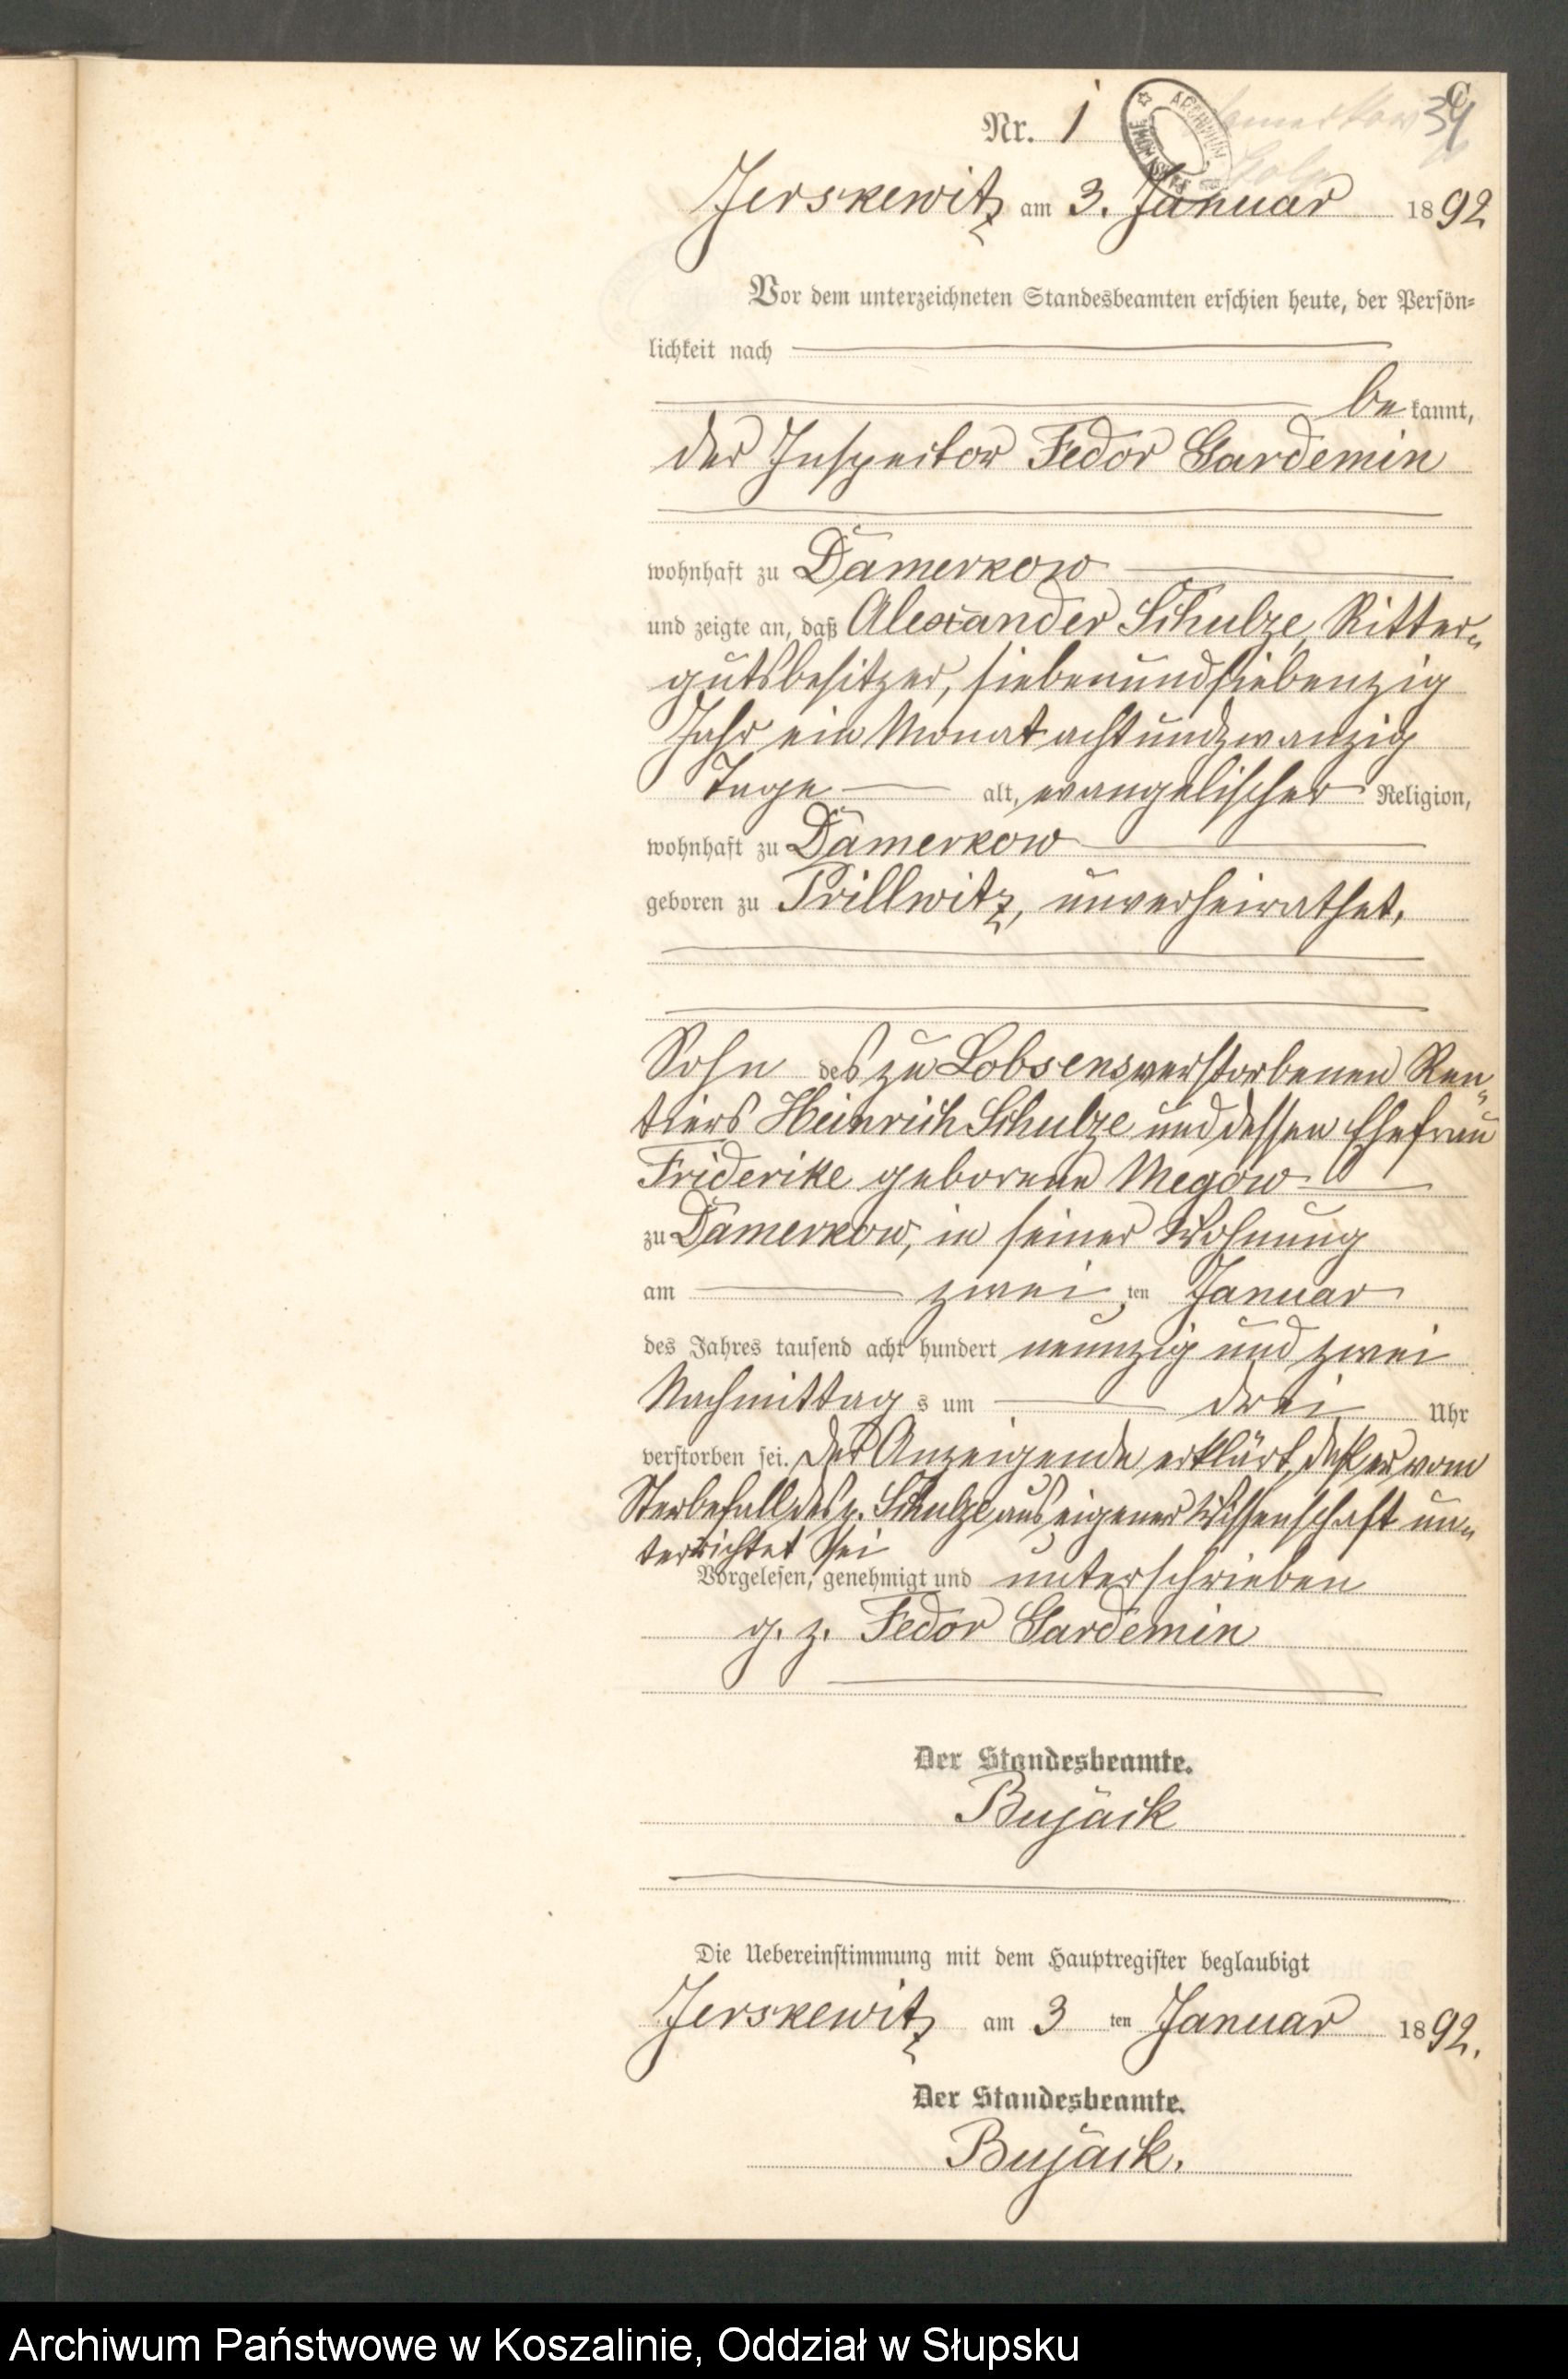 C
34
Nr. 1
ARCHIWUM PAŃSTWOWE
Jerskewitz am 3. Januar 1892
Vor dem unterzeichneten Standesbeamten erschien heute, der Persön-
lichkeit nach
be kannt,
der Inspector Fedor Gardemin
wohnhaft zu Damerkow
und zeigte an, daß Alexander Schulze, Ritter-
gutsbesitzer, siebenundsiebenzig
Jahr ein Monat achtundzwanzig
Tage alt, evangelischer Religion,
wohnhaft zu Damerkow
geboren zu Prillwitz, unverheirathet,
Sohn des zu Lobsens verstorbenen Ren-
tiers Heinrich Schulze und dessen Ehefrau
Friderike geborene Megow
zu Damerkow, in seiner Wohnung
am zwei ten Januar
des Jahres tausend acht hundert neunzig und zwei
Nachmittag s um drei Uhr
verstorben sei. Der Anzeigende erklärt, daß er vom
Sterbefall des p. Schulze aus eigener Wissenschaft un-
terrichtet sei
Vorgelesen, genehmigt und unterschrieben
g. z. Fedor Gardemin
Der Standesbeamte.
Bujack
Die Uebereinstimmung mit dem Hauptregister beglaubigt
Jerskewitz am 3 ten Januar 1892.
Der Standesbeamte.
Bujack.
Archiwum Państwowe w Koszalinie, Oddział w Słupsku